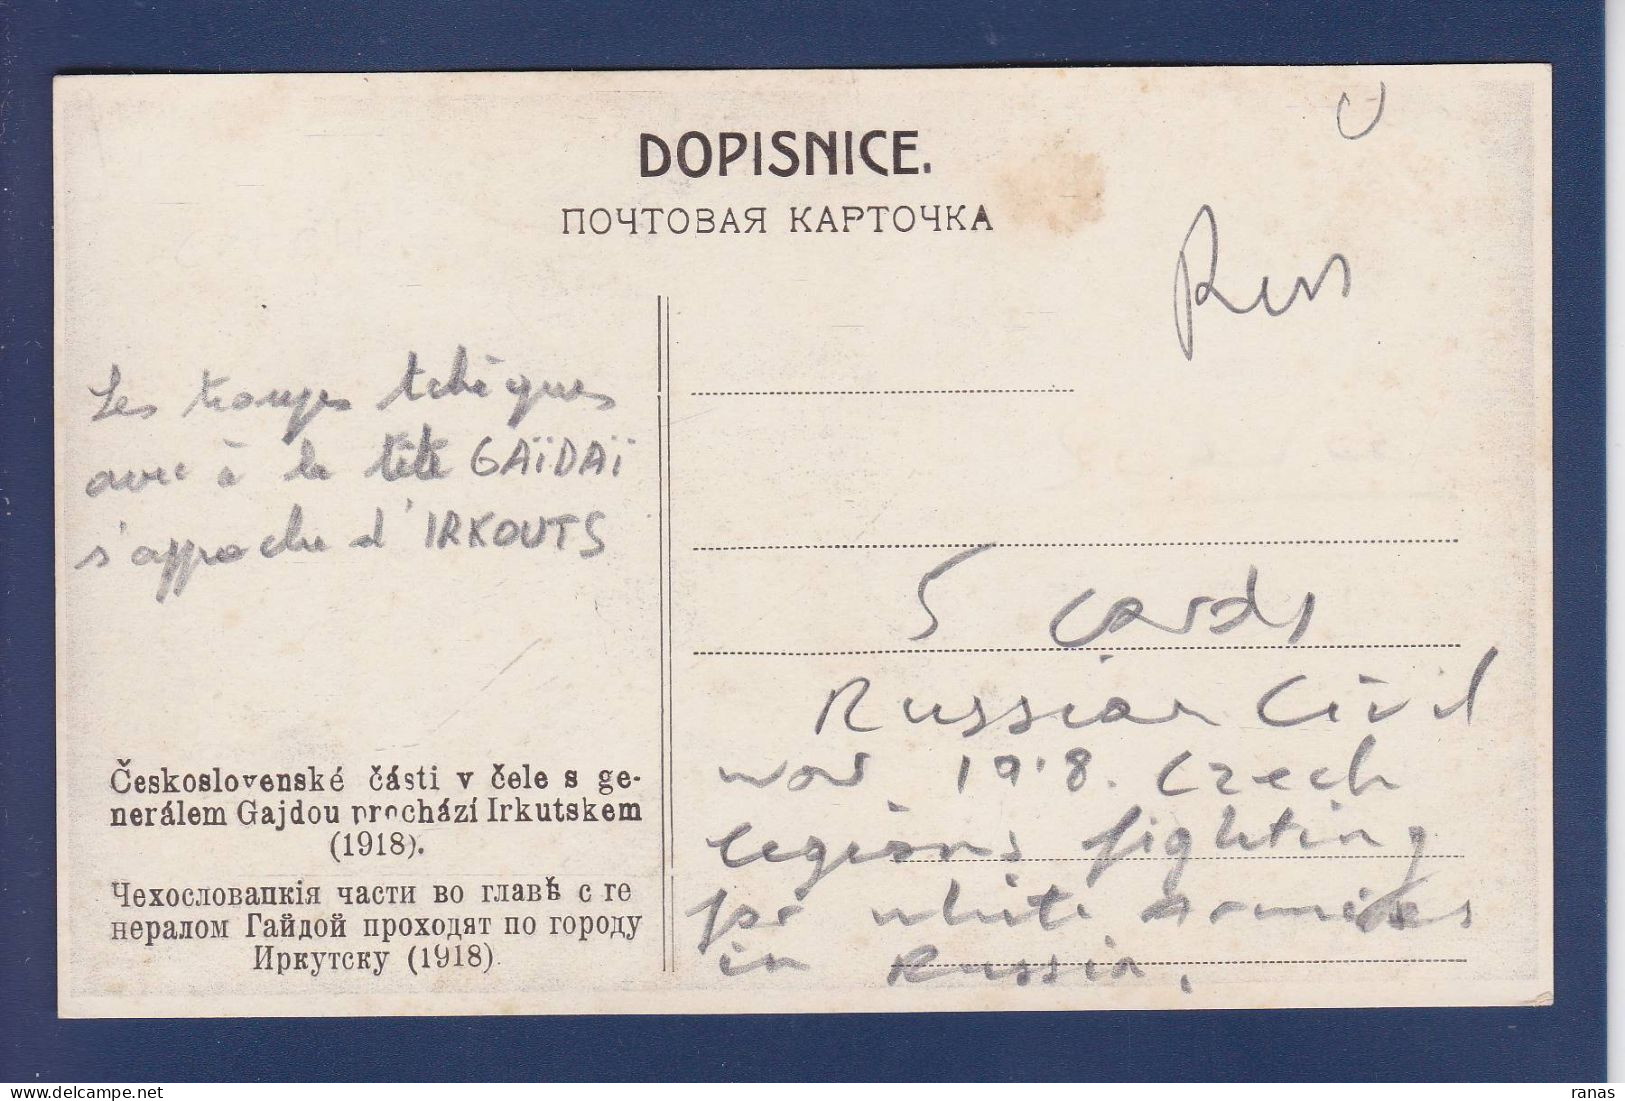 DOPISNICE.
ПОЧТОВАЯ КАРТОЧКА
Russ
Les troupes tchèques
avec à la tête GAÏDAÏ
s'approche d'IRKOUTS
Československé části v čele s ge-
nerálem Gajdou prochází Irkutskem
(1918).
Чехословацкія части во главѣ с ге
нералом Гайдой проходят по городу
Иркутску (1918)
5 cards
Russian Civil
war 1918. Czech
legions fighting
for white armies
in Russia.
ranas